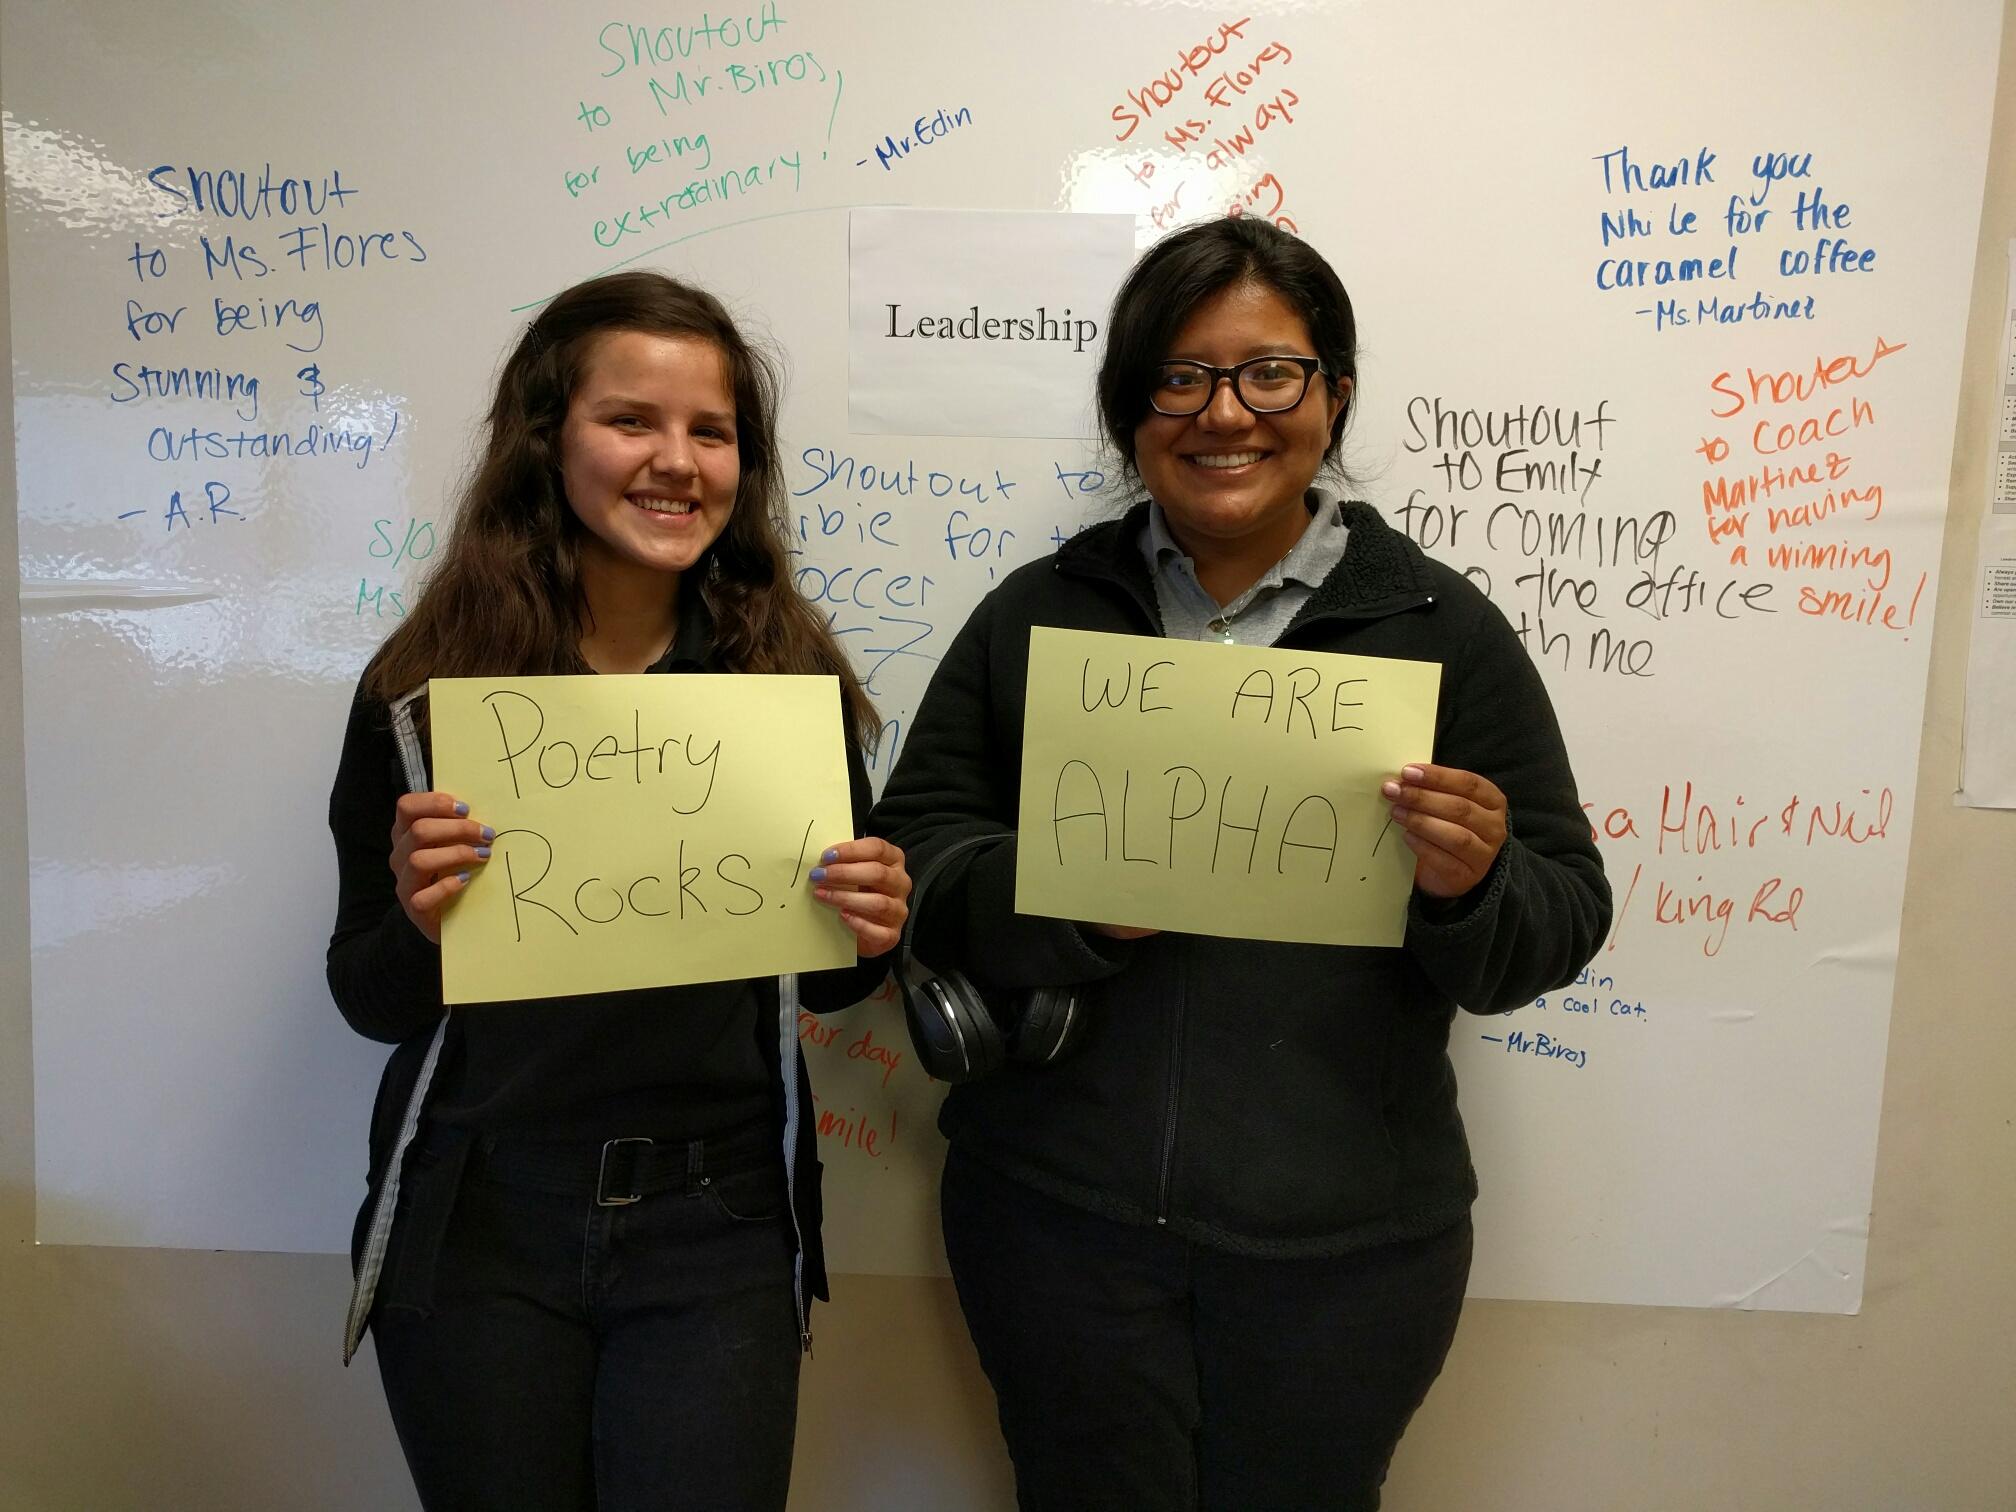 Shoutout
to Mr. Biros,
for being
extradinary!
- Mr. Edin
Shoutout
to Ms. Flores
for always
Shoutout
to Ms. Flores
for being
Stunning &
Outstanding!
- A.R.
Thank you
Nhi Le for the
caramel coffee
- Ms. Martinez
Leadership
Shoutout to
for
S/O
Ms
Shoutout
to Emily
for coming
the office
me
Shoutout
to Coach
Martinez
for having
a winning
smile!
Poetry
Rocks!
WE ARE
ALPHA!
Hair & Nail
/ King Rd
a cool cat.
- Mr. Biros
day